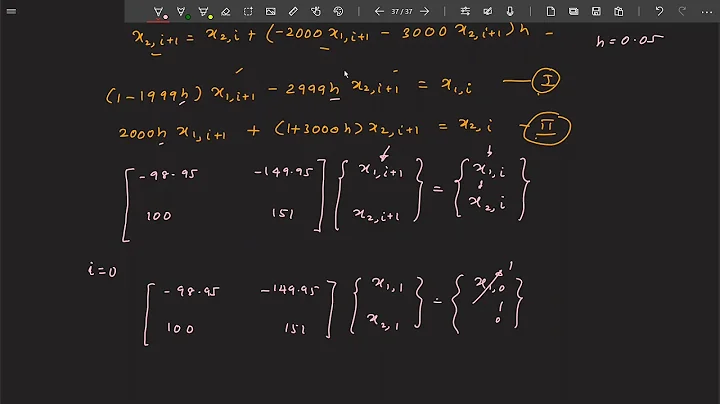 37 / 37
x2,i+1 = x2,i + (-2000 x1,i+1 - 3000 x2,i+1) h -
h = 0.05
(1-1999h) x1,i+1 - 2999h x2,i+1 = x1,i — I
2000h x1,i+1 + (1+3000h) x2,i+1 = x2,i - II
[ -98.95 -149.95 ] { x1,i+1 } = { x1,i }
[ 100 151 ] { x2,i+1 } { x2,i }
i=0
[ -98.95 -149.95 ] { x1,1 } = { x1,0 1 }
[ 100 151 ] { x2,1 } { 1 0 }